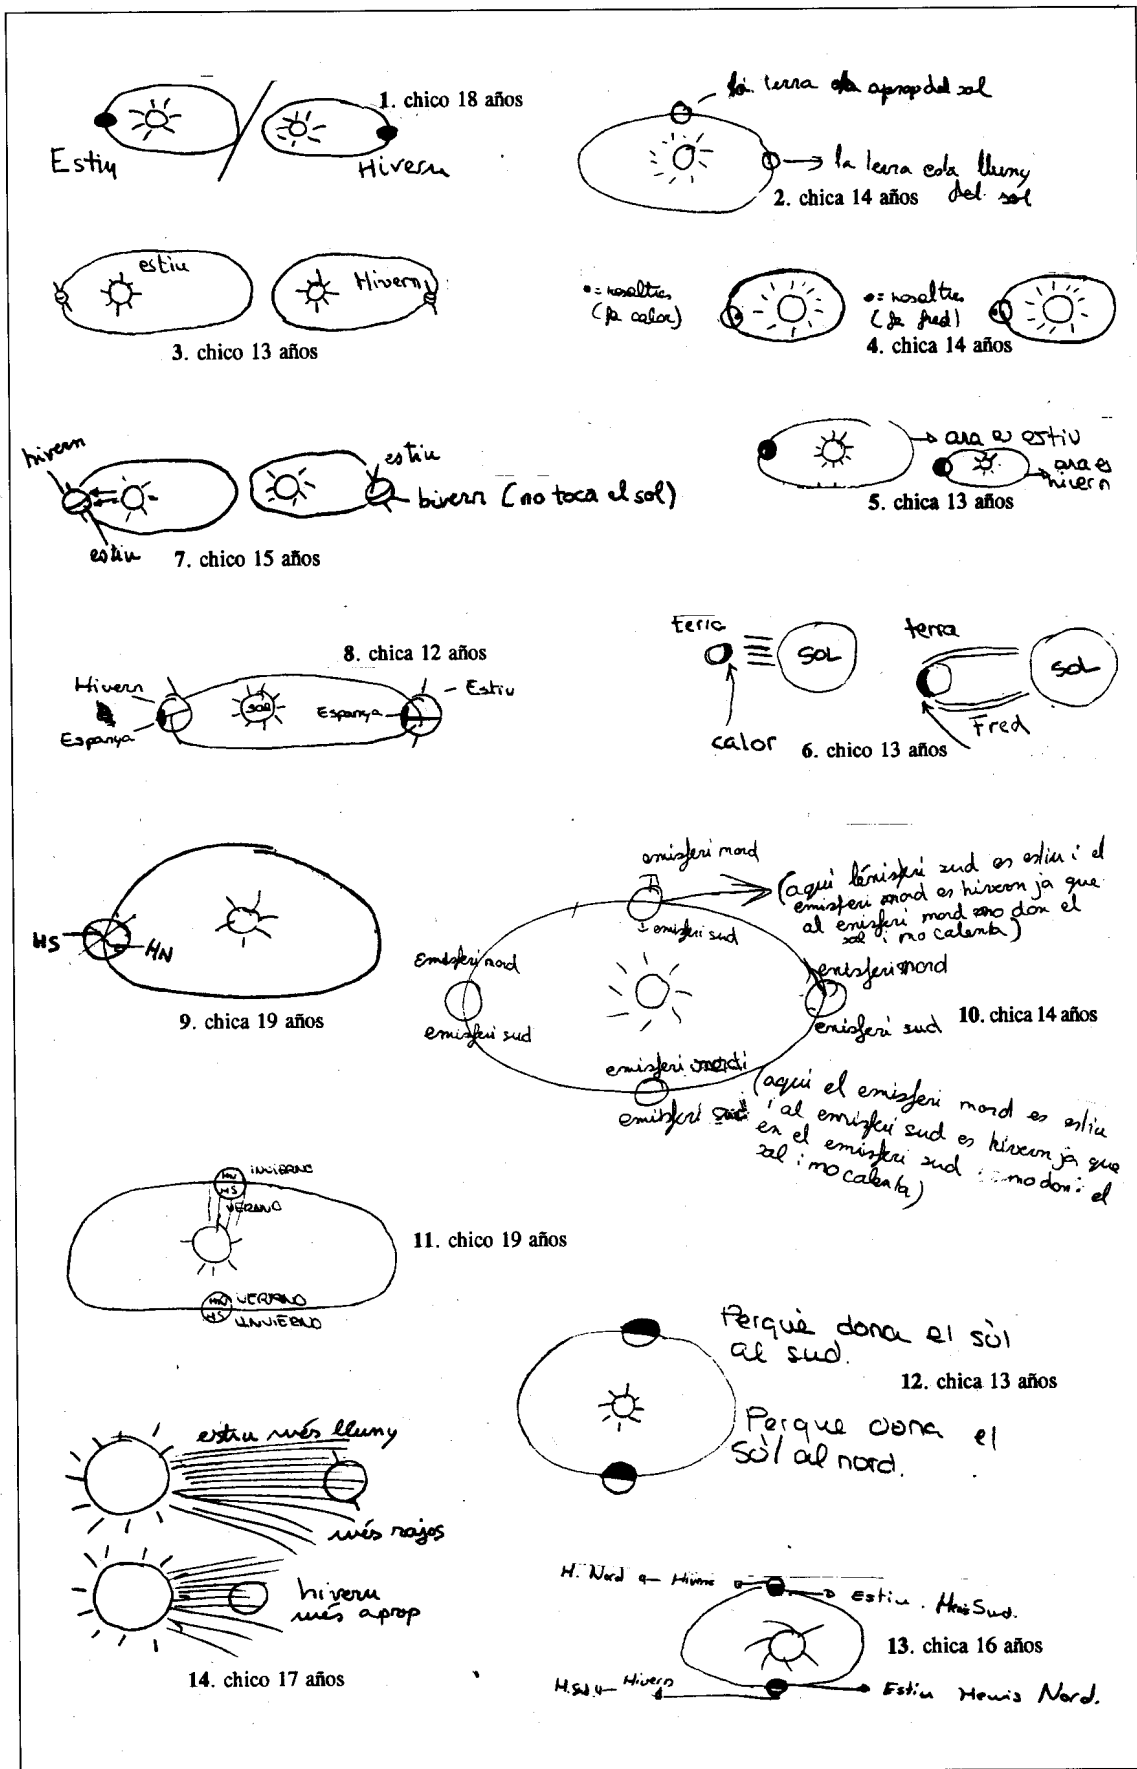 1. chico 18 años
Estiu
Hivern
la terra esta aprop del sol
la terra esta lluny
del sol
2. chica 14 años
estiu
Hivern
3. chico 13 años
•= nosaltres
(fa calor)
•= nosaltres
(fa fred)
4. chica 14 años
ara es estiu
ara es
hivern
5. chica 13 años
hivern
estiu
estiu
hivern (no toca el sol)
7. chico 15 años
terra
SOL
calor
terra
SOL
Fred
6. chico 13 años
8. chica 12 años
Hivern
Espanya
SOL
Espanya
Estiu
HS
HN
9. chica 19 años
emisferi nord
emisferi sud
(aquí l'emisferi sud es estiu i el
emisferi nord es hivern ja que
al emisferi nord no don el
sol i no calenta)
Emisferi nord
emisferi sud
emisferi nord
emisferi sud
10. chica 14 años
emisferi nord
emisferi sud
(aquí el emisferi nord es estiu
i al emisferi sud es hivern ja que
en el emisferi sud no doni el
sol i no calenta)
HN INVIERNO
HS
VERANO
11. chico 19 años
HN VERANO
HS INVIERNO
Perquè dona el sòl
al sud.
12. chica 13 años
Perque dona el
sòl al nord.
estiu més lluny
més rajos
hivern
més aprop
14. chico 17 años
H. Nord
Estiu. Hemis Sud.
13. chica 16 años
H. Sud Hivern
Estiu Hemis Nord.